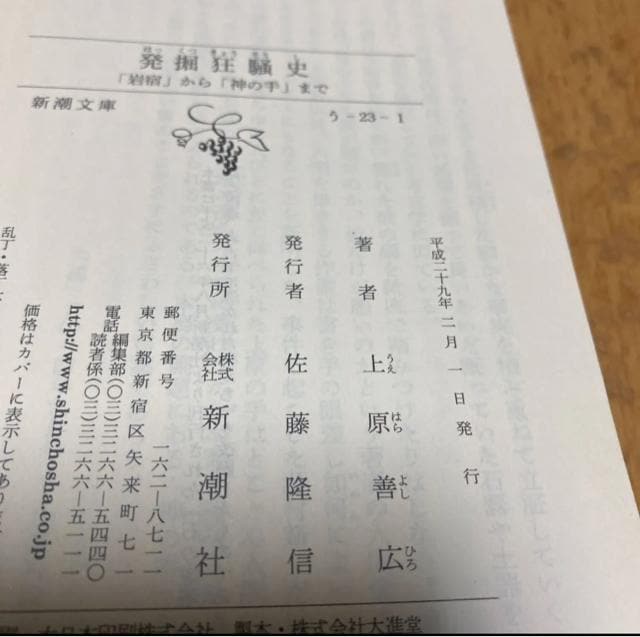 発掘狂騒史
「岩宿」から「神の手」まで
新潮文庫
う-23-1
平成二十九年二月一日発行
著者 上原善広
発行者 佐藤隆信
発行所 株式会社 新潮社
郵便番号 一六二―八七一一
東京都新宿区矢来町七一
電話 編集部(〇三)三二六六―五四四〇
読者係(〇三)三二六六―五一一一
http://www.shinchosha.co.jp
価格はカバーに表示してあります
乱丁・落丁
印刷株式会社 製本・株式会社大進堂